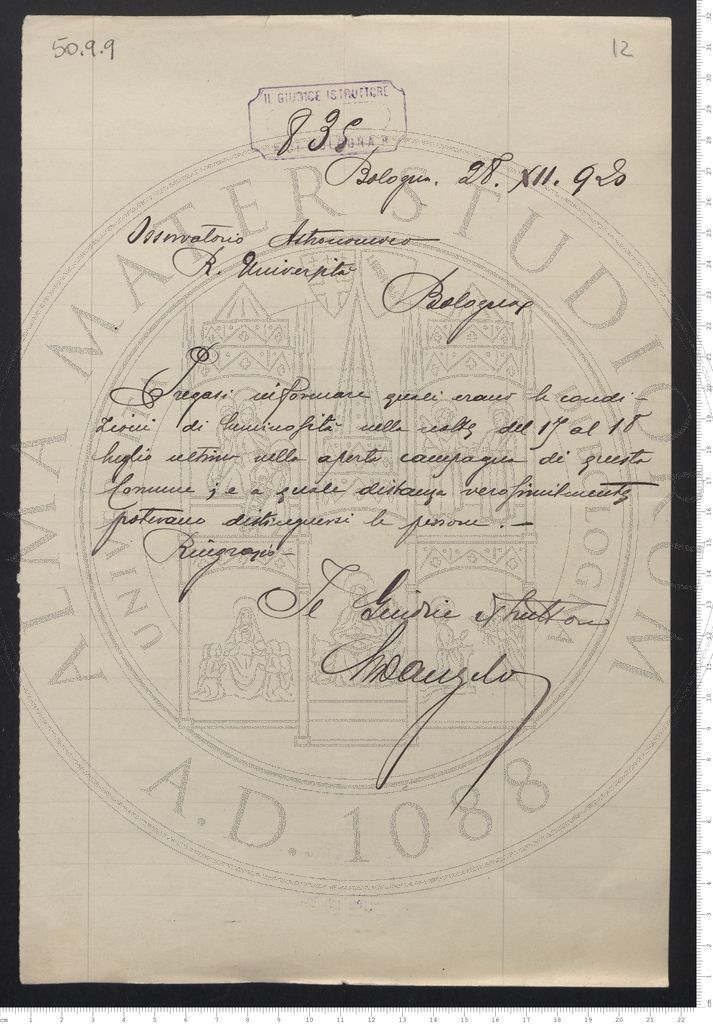 50.9.9
12
IL GIUDICE ISTRUTTORE
835
BOLOGNA
Bologna. 28. XII. 920
Osservatorio Astronomico
R. Università
Bologna
Pregasi informare quali erano le condi-
zioni di luminosità nella notte del 17 al 18
luglio ultimo nella aperta campagna di questo
Comune; e a quale distanza verosimilmente
potevano distinguersi le persone. –
Ringrazio –
Il Giudice Istruttore
ALMA MATER STUDIORUM
A.D. 1088